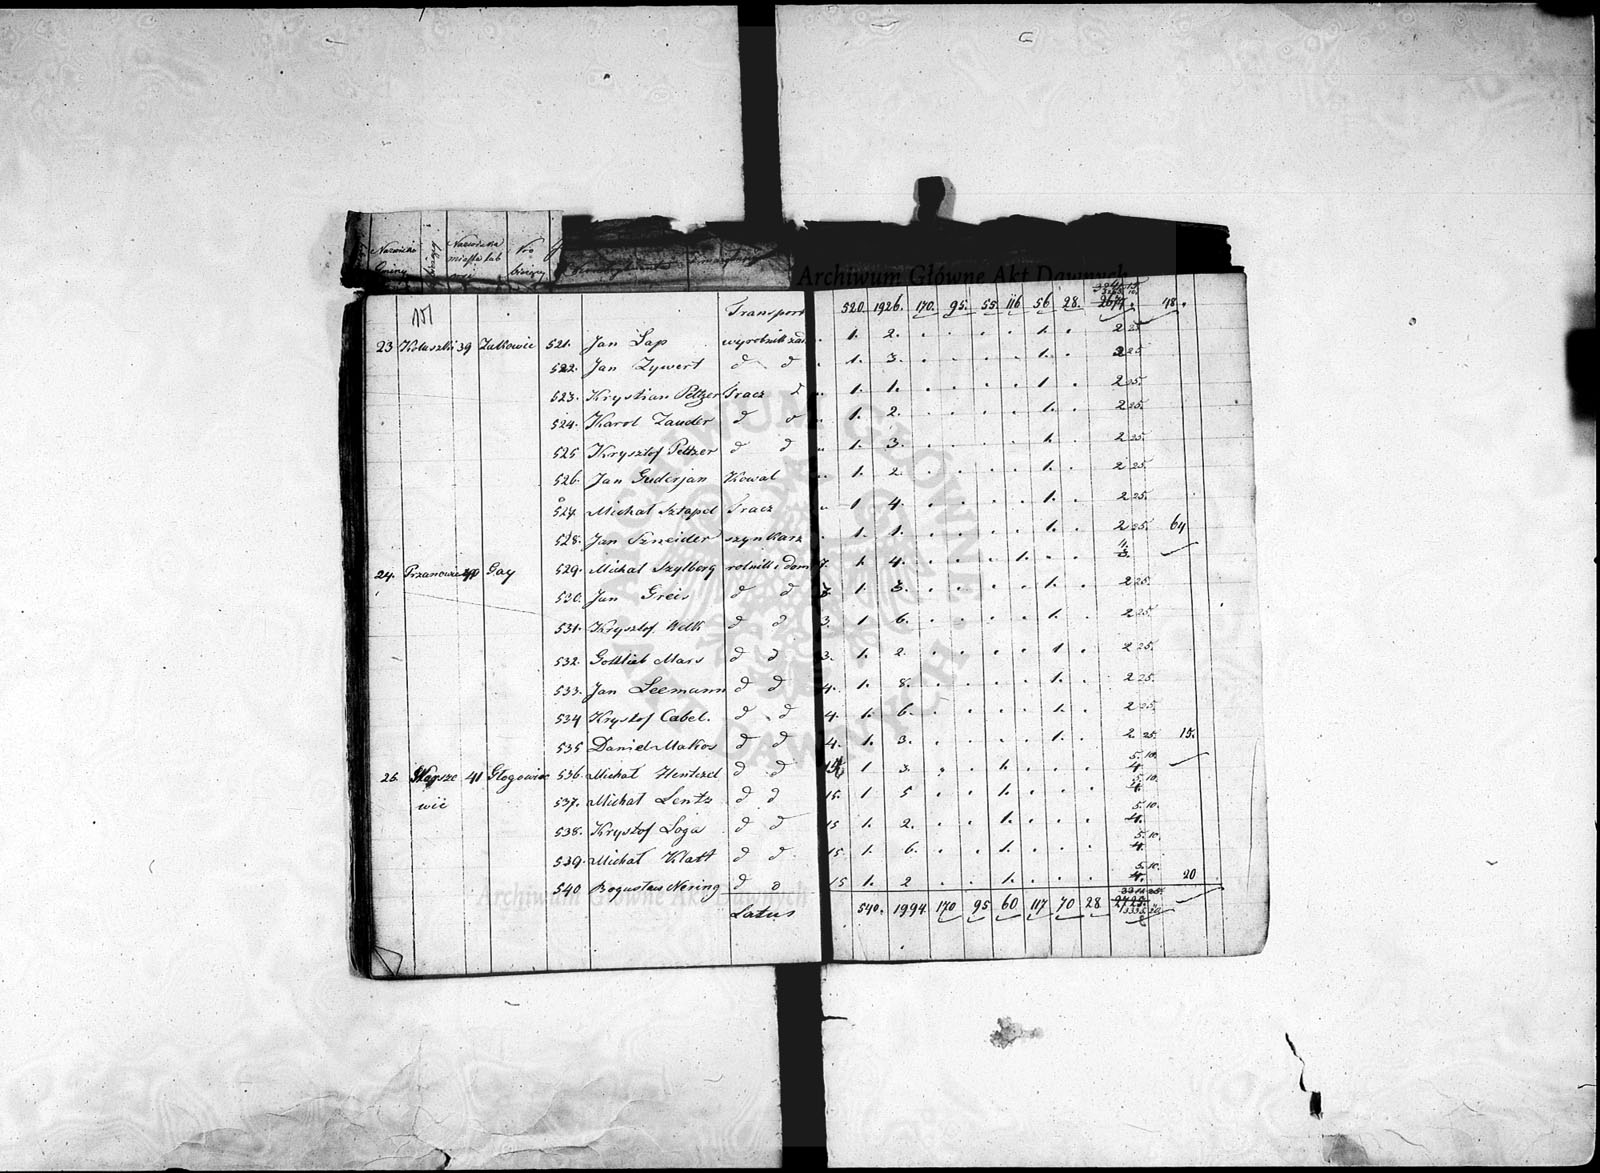 Nazwiska Gminy
Nazwiska miasta lub wsi
No bieżący
Archiwum Główne Akt Dawnych
151
Transport 520. 1926. 170. 95. 55. 116 56. 28. 48.
23 Koluszki 39 Zalkowic 521. Jan Lap wyrobnik 1. 2. . . . . 1. . 2 25
522. Jan Zywert d d 1. 3. . . . . 1. . 2 25
523. Krystian Peltzer Tracz d 1. 1. . . . . 1. . 2 25.
524. Karol Zauder d d 1. 2. . . . . 1. . 2 25.
525 Krysztof Peltzer d d 1. 3. . . . . 1. . 2 25
526. Jan Guderjan Kowal 1. 2. . . . . 1. . 2 25.
527. Michał Sztapel Tracz 1 4. . . . . 1. . 2 25.
528. Jan Szneider szynkarz 1. 1. . . . . 1. . 2 25. 64
24. 40 Gay 529. Michał Szylberg rolnik i dom 7. 1. 4. . . . 1. . . 4.
530. Jan Greis d d 3. 1. 3. . . . . 1. . 2 25.
531. Krysztof d d 3. 1 6. . . . . 1. . 2 25.
532. Gottlieb Mars d d 3. 1. 2. . . . . 1. . 2 25.
533. Jan Leemann d d 4. 1. 8. . . . . 1. . 2 25.
534 Krysztof Cabel. d d 4. 1. 6. . . . . 1. . 2 25.
535 Daniel Makos d d 4. 1. 3. . . . . 1. . 2 25. 15.
25. 41 Głogowiec 536. Michał Hentzel d d 1 3. . . 1. . . . 5. 10.
wic 537. Michał Lentz d d 15. 1. 5 . . 1. . . . 5. 10.
538. Krysztof Loga d d 15 1. 2. . . 1. . . . 5. 10.
539. Michał Klatt d d 15. 1. 6. . . 1. . . . 5. 10.
540 Bogusław Nering d d 15 1. 2 . . 1. . . . 5. 10. 20
Archiwum Główne Akt Dawnych
Latus 540. 1994 170 95 60. 117 70 28